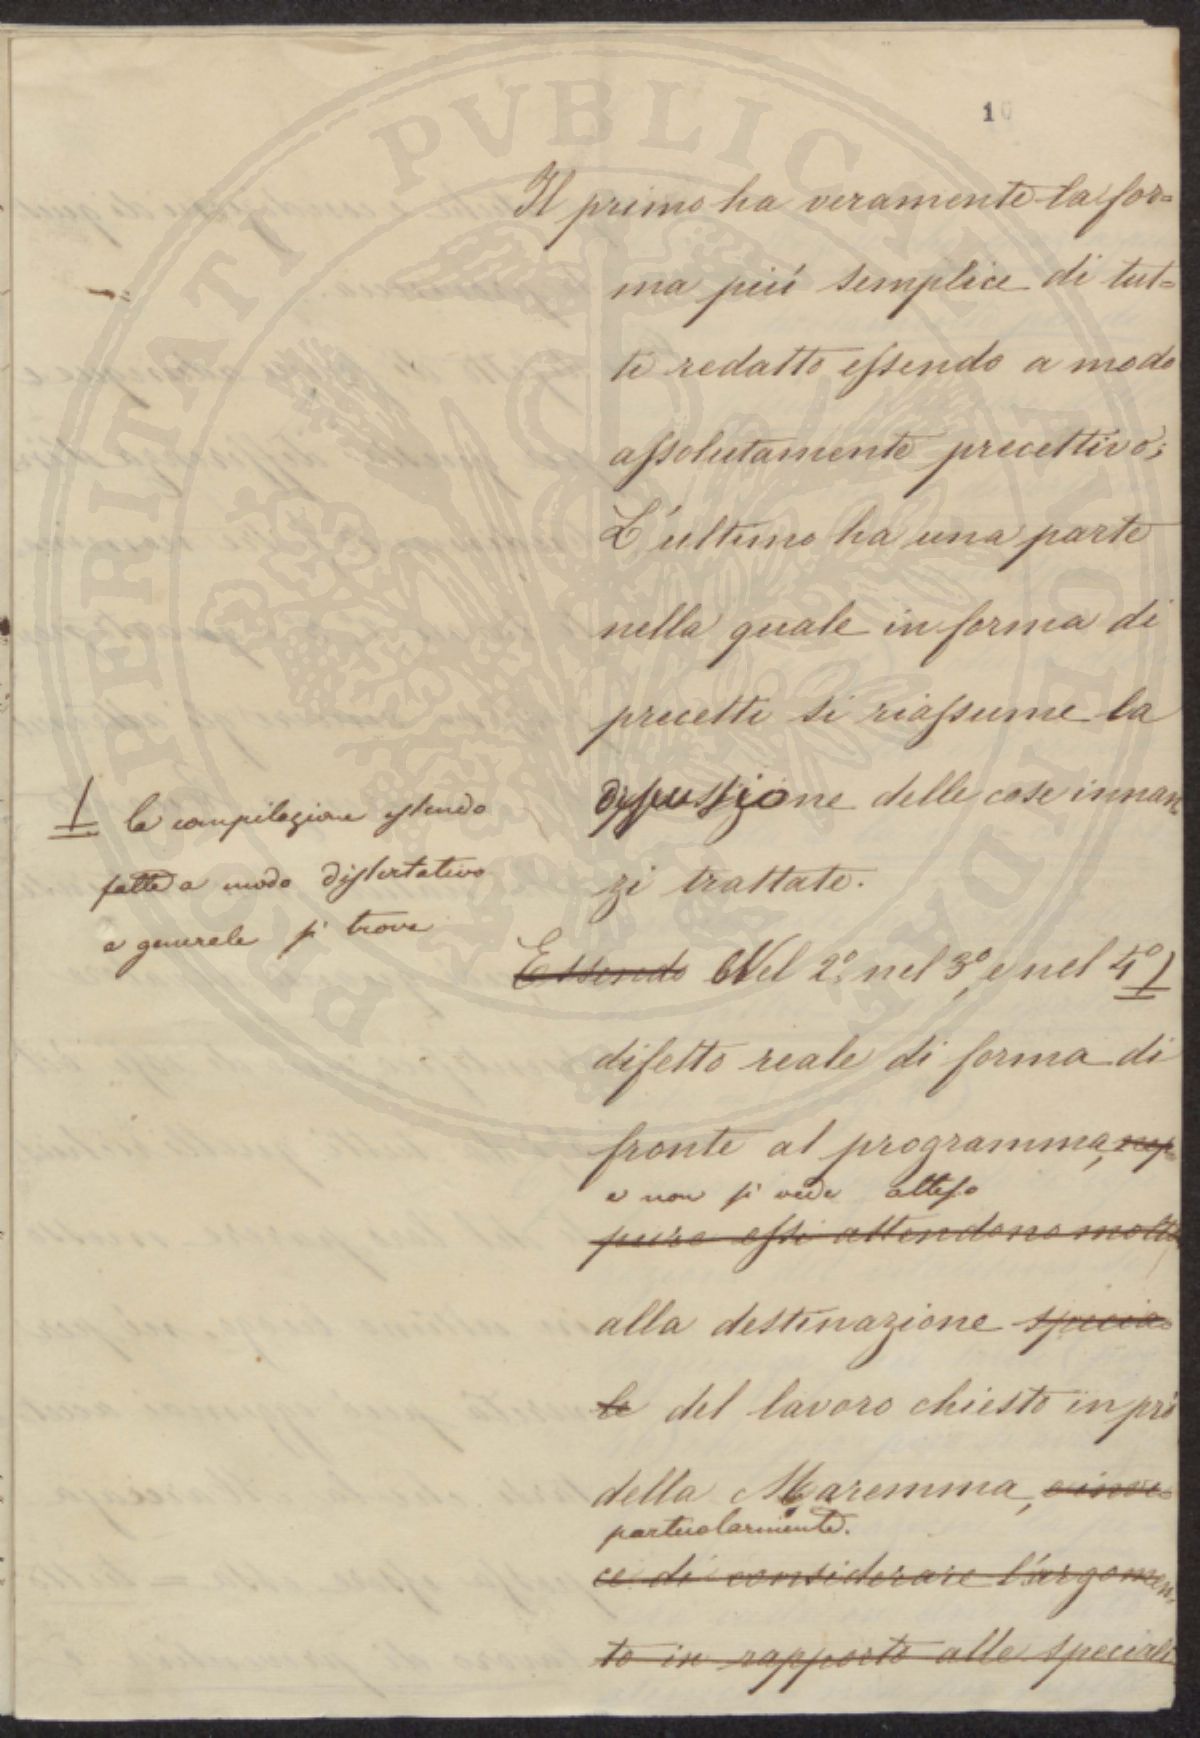 10
Il primo ha veramente la for=
ma più semplice di tut=
ti redatto essendo a modo
assolutamente precettivo;
L'ultimo ha una parte
nella quale in forma di
precetti si riassume la
delle cose innan
zi trattate.
la compilazione essendo
fatta a modo dissertativo
e generale si trova
Essendo Nel 2º nel 3º, e nel 4º
difetto reale di forma di
fronte al programma,
e non si vede atteso
pure essi attendono molto
alla destinazione specia
le del lavoro chiesto in prò
della Maremma, e inve
particolarmente.
ce di considerare l'argomen
to in rapporto alle speciali
PROSPERITATI PVBLICAE AVGENDAE